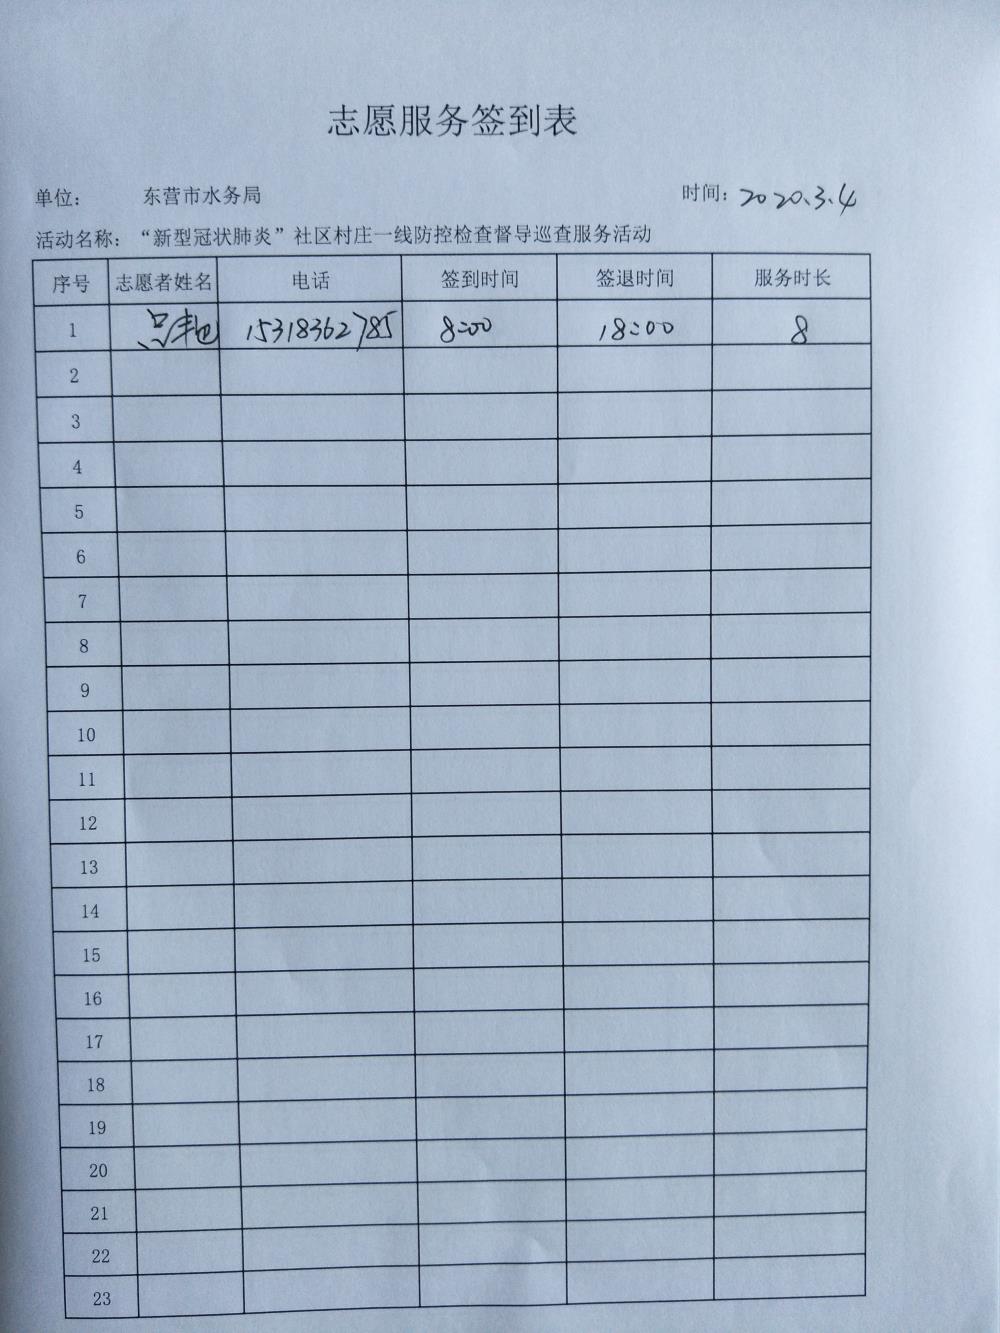 志愿服务签到表
单位: 东营市水务局 时间: 2020.3.4
活动名称: “新型冠状肺炎”社区村庄一线防控检查督导巡查服务活动
序号 志愿者姓名 电话 签到时间 签退时间 服务时长
1 15318362785 8:00 18:00 8
2
3
4
5
6
7
8
9
10
11
12
13
14
15
16
17
18
19
20
21
22
23